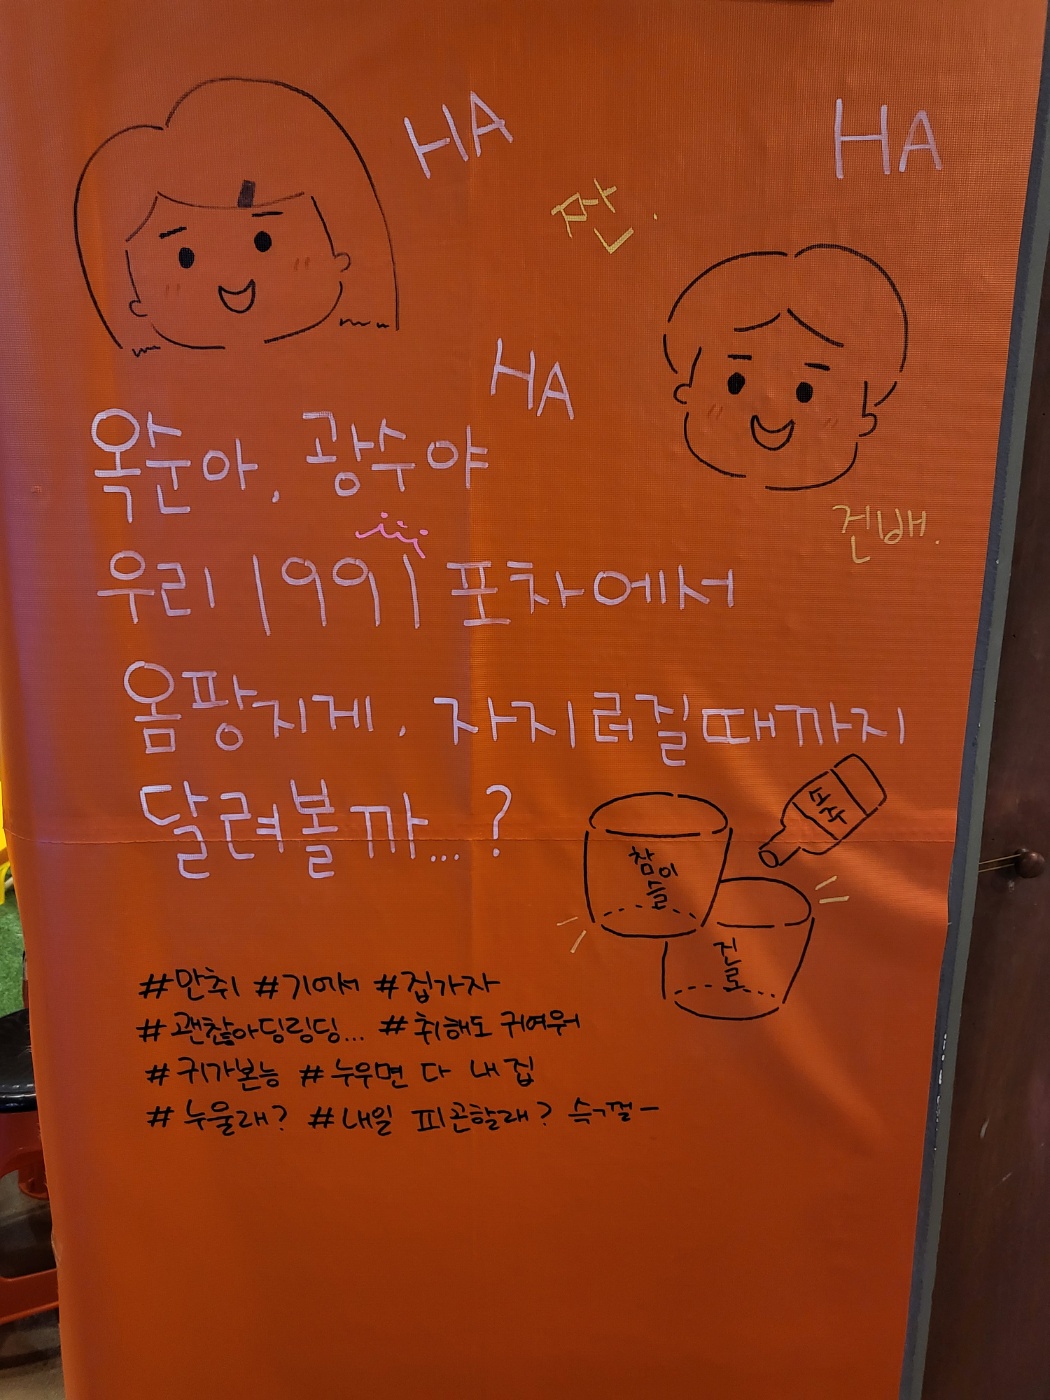 HA
HA
짠.
HA
옥순아, 광수야
건배.
우리 1991 포차에서
옴팡지게, 자지러질때까지
달려볼까...?
소주
참이슬
진로
#만취 #기어서 #집가자
#괜찮아딩링딩... #취해도 귀여워
#귀가본능 #누우면 다 내집
#누울래? #내일 피곤할래? 슥걸-